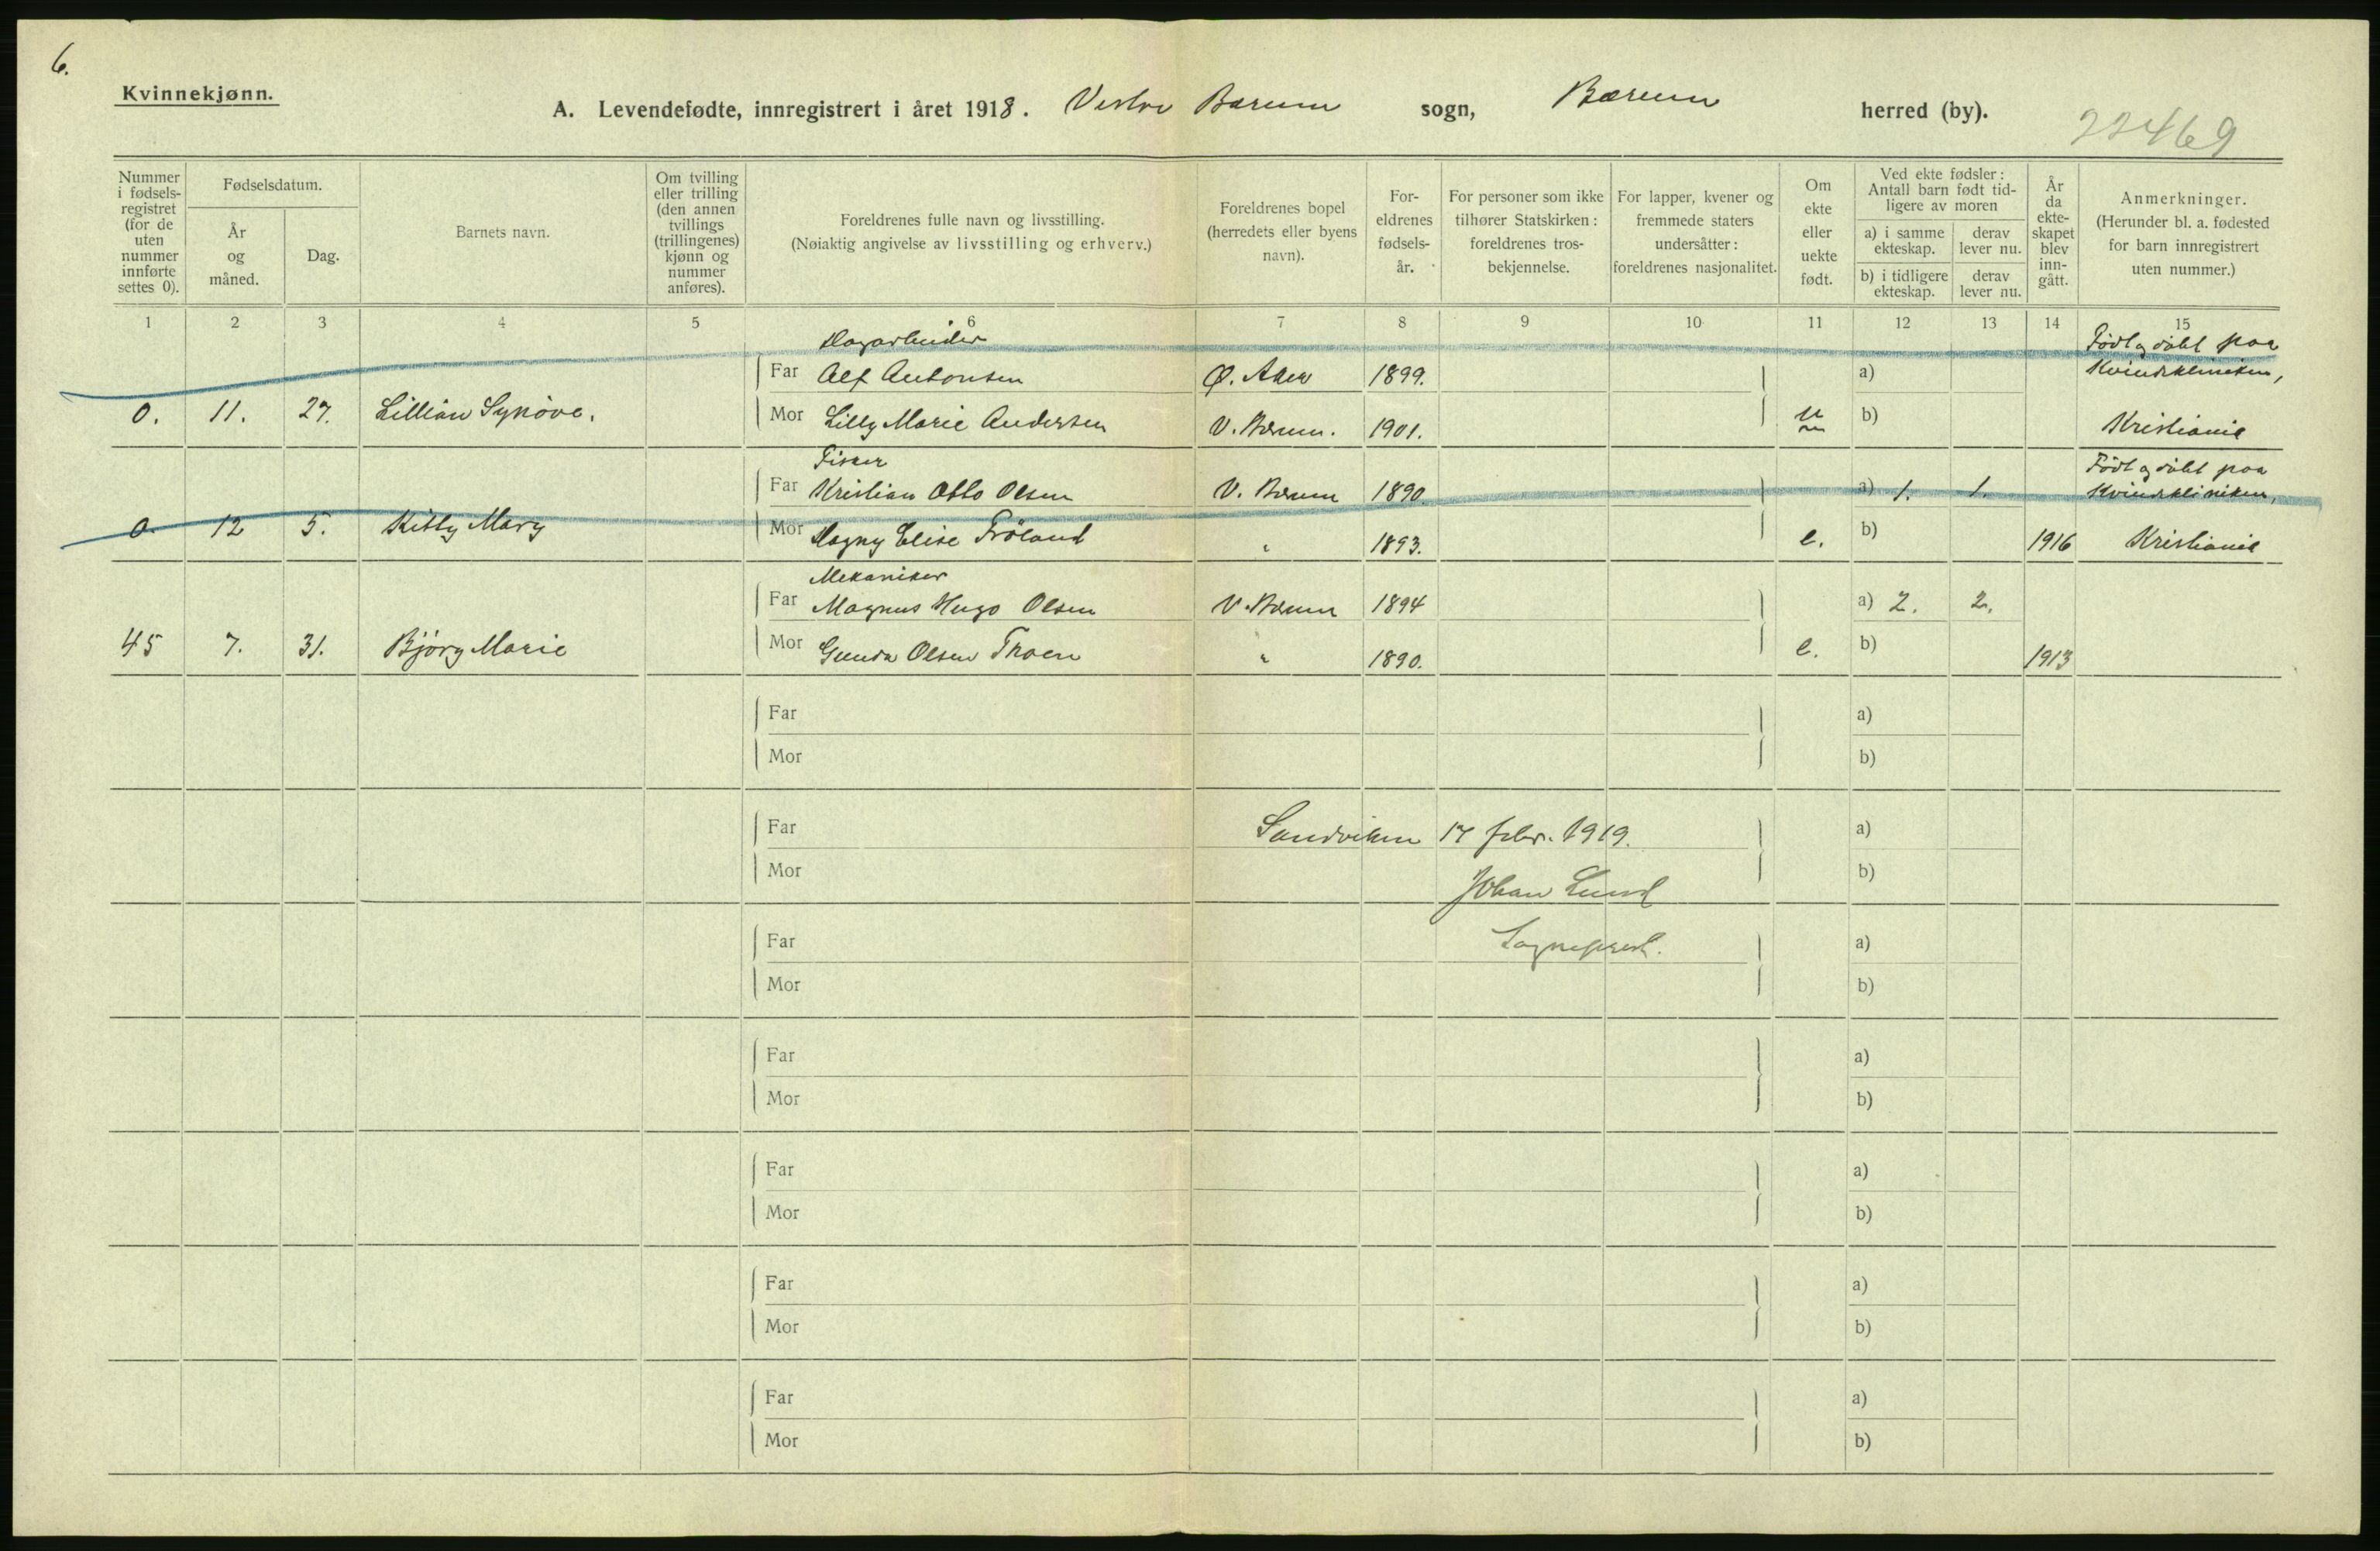 6.
Kvinnekjønn.
A. Levendefødte, innregistrert i året 1918. Vestre Bærum sogn, Bærum herred (by).
22469
Nummer i fødsels-registret (for de uten nummer innførte settes 0).
Fødselsdatum.
År og måned.
Dag.
Barnets navn.
Om tvilling eller trilling (den annen tvillings (trillingenes) kjønn og nummer anføres).
Foreldrenes fulle navn og livsstilling.
(Nøiaktig angivelse av livsstilling og erhverv.)
Foreldrenes bopel (herredets eller byens navn).
For-eldrenes fødsels-år.
For personer som ikke tilhører Statskirken: foreldrenes tros-bekjennelse.
For lapper, kvener og fremmede staters undersåtter: foreldrenes nasjonalitet.
Om ekte eller uekte født.
Ved ekte fødsler: Antall barn født tid-ligere av moren
a) i samme ekteskap.
derav lever nu.
b) i tidligere ekteskap.
derav lever nu.
År da ekte-skapet blev inn-gått.
Anmerkninger.
(Herunder bl. a. fødested for barn innregistrert uten nummer.)
1 2 3 4 5 6 7 8 9 10 11 12 13 14 15
Dagarbeider
Født og døbt paa
Far Alf Antonsen Ø. Aker 1899. a) Kvindekliniken,
0. 11. 27. Lillian Synöve. Mor Lilly Marie Andersen V. Bærum. 1901. u b) Kristiania
Fisker
Født og døbt paa
Far Kristian Otto Olsen V. Bærum 1890 a) 1. 1. Kvindekliniken,
0. 12 5. Kitty Mary Mor Dagny Elise Fröland " 1893. e. b) 1916 Kristiania
Mekaniker
Far Magnus Hugo Olsen V. Bærum 1894 a) 2. 2.
45 7. 31. Bjørg Marie Mor Gunda Olsen Thoen " 1890. e. b) 1913
Far a)
Mor b)
Far Sandviken 17 febr. 1919. a)
Mor b)
Johan Lund
Far Sogneprest. a)
Mor b)
Far a)
Mor b)
Far a)
Mor b)
Far a)
Mor b)
Far a)
Mor b)